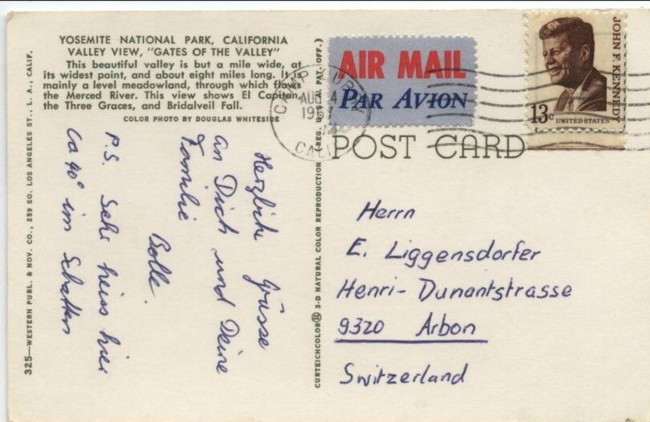 YOSEMITE NATIONAL PARK, CALIFORNIA
VALLEY VIEW, "GATES OF THE VALLEY"
This beautiful valley is but a mile wide, at
its widest point, and about eight miles long. It is
mainly a level meadowland, through which flows
the Merced River. This view shows El Capitan,
the Three Graces, and Bridalveil Fall.
COLOR PHOTO BY DOUGLAS WHITESIDE
325—WESTERN PUBL. & NOV. CO., 259 SO. LOS ANGELES ST., L. A., CALIF.
Herzliche Grüsse
an Dich und Deine
Familie
Bolle.
P.S. Sehr heiss hier
ca 40° im Schatten
CURTEICHCOLOR® 3-D NATURAL COLOR REPRODUCTION (REG. U.S.A. PAT. OFF.)
AIR MAIL
PAR AVION
AUG
CALIF
JOHN F. KENNEDY
13c
UNITED STATES
POST CARD
Herrn
E. Liggensdorfer
Henri-Dunantstrasse
9320 Arbon
Switzerland